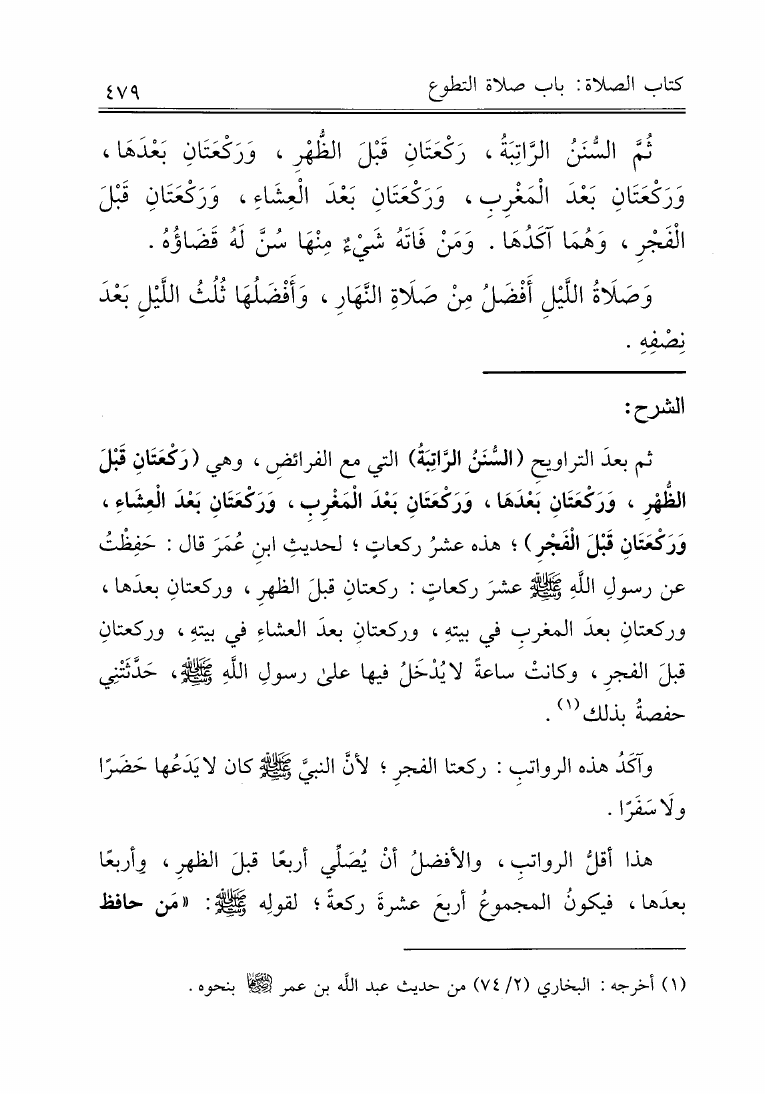 كتاب الصلاة: باب صلاة التطوع
٤٧٩
ثُمَّ السُّنَنُ الرَّاتِبَةُ، رَكْعَتَانِ قَبْلَ الظُّهْرِ، وَرَكْعَتَانِ بَعْدَهَا،
وَرَكْعَتَانِ بَعْدَ الْمَغْرِبِ، وَرَكْعَتَانِ بَعْدَ الْعِشَاءِ، وَرَكْعَتَانِ قَبْلَ
الْفَجْرِ، وَهُمَا آكَدُهَا. وَمَنْ فَاتَهُ شَيْءٌ مِنْهَا سُنَّ لَهُ قَضَاؤُهُ.
وَصَلَاةُ اللَّيْلِ أَفْضَلُ مِنْ صَلَاةِ النَّهَارِ، وَأَفْضَلُهَا ثُلُثُ اللَّيْلِ بَعْدَ
نِصْفِهِ.
الشرح:
ثم بعدَ التراويح (السُّنَنُ الرَّاتِبَةُ) التي مع الفرائض، وهي (رَكْعَتَانِ قَبْلَ
الظُّهْرِ، وَرَكْعَتَانِ بَعْدَهَا، وَرَكْعَتَانِ بَعْدَ الْمَغْرِبِ، وَرَكْعَتَانِ بَعْدَ الْعِشَاءِ،
وَرَكْعَتَانِ قَبْلَ الْفَجْرِ)؛ هذه عشرُ ركعاتٍ؛ لحديثِ ابنِ عُمَرَ قال: حَفِظْتُ
عن رسولِ اللَّهِ ﷺ عشرَ ركعاتٍ: ركعتانِ قبلَ الظهرِ، وركعتانِ بعدَها،
وركعتانِ بعدَ المغربِ في بيتهِ، وركعتانِ بعدَ العشاءِ في بيتهِ، وركعتانِ
قبلَ الفجرِ، وكانتْ ساعةً لا يُدْخَلُ فيها علىٰ رسولِ اللَّهِ ﷺ، حَدَّثَتْنِي
حفصةُ بذلك(١).
وآكَدُ هذه الرواتبِ: ركعتا الفجرِ؛ لأنَّ النبيَّ ﷺ كان لا يَدَعُها حَضَرًا
ولَا سَفَرًا.
هذا أقلُّ الرواتبِ، والأفضلُ أنْ يُصَلِّي أربعًا قبلَ الظهرِ، وأربعًا
بعدَها، فيكونُ المجموعُ أربعَ عشرةَ ركعةً؛ لقولِه ﷺ: «مَن حافظ
(١) أخرجه: البخاري (٢/ ٧٤) من حديث عبد اللَّه بن عمر رضي الله عنهما بنحوه.